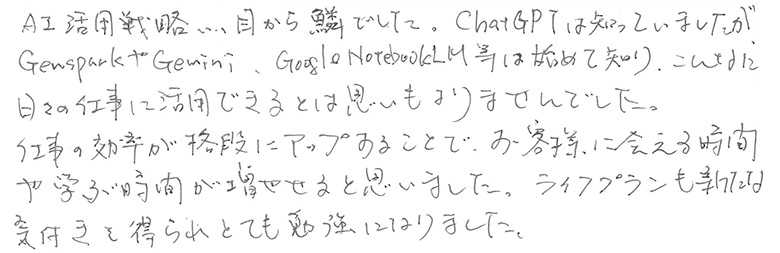 AI活用戦略…、目から鱗でした。ChatGPTは知っていましたが
GensparkやGemini、Google NotebookLM等は始めて知り、こんなに
日々の仕事に活用できるとは思いもよりませんでした。
仕事の効率が格段にアップすることで、お客様に会える時間
や学ぶ時間が増やせると思いました。ライフプランも新たな
気付きを得られとても勉強になりました。